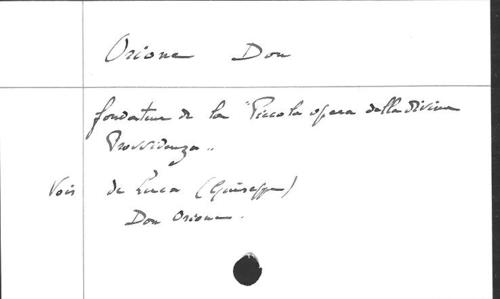 Orione Don
fondateur de la "Piccola opera della divina
Provvidenza"..
Voir de Luca (Giuseppe)
Don Orione.